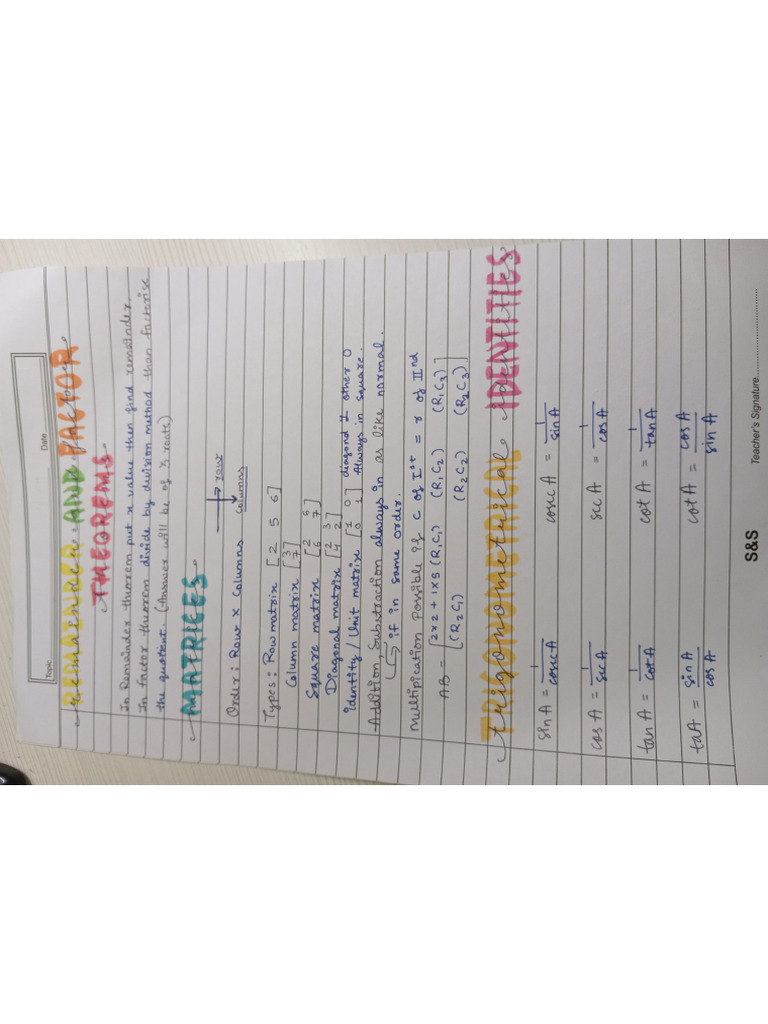 Topic
Date
REMAINDER AND FACTOR
remainder
THEOREMS
In Remainder theorem put x value then find remainder.
In factor theorem divide by division method than factorise
the quotient. (Answer will be of 3 roots)
MATRICES
→ row
Order: Row x Columns columns
Types: Row matrix [2 5 6]
Column matrix [3 7]
Square matrix [2 5 6 7]
Diagonal matrix [2 3 4 2]
identity / Unit matrix [1 0 0 1] diagonal 1 other 0
Always in square.
Addition, Substraction always in as like normal.
→ if in same order.
Multiplication Possible if C of Ist = r of IInd
AB = [2x2 + 1x3 (R₁C₁) (R₁C₂) (R₁C₃)
(R₂C₁) (R₂C₂) (R₂C₃)]
TRIGONOMETRICAL IDENTITIES
trigonometrical identities
sin A = 1/cosec A cosec A = 1/sin A
cos A = 1/sec A sec A = 1/cos A
tan A = 1/cot A cot A = 1/tan A
taA = sin A/cos A cot A = cos A/sin A
S&S
Teacher's Signature